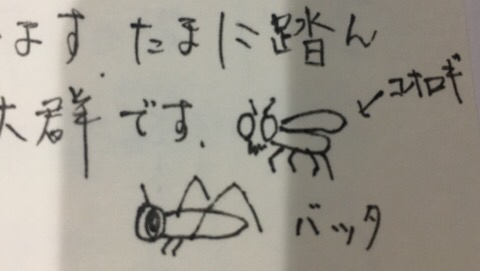 ます. たまに踏ん
大群です.
コオロギ
バッタ